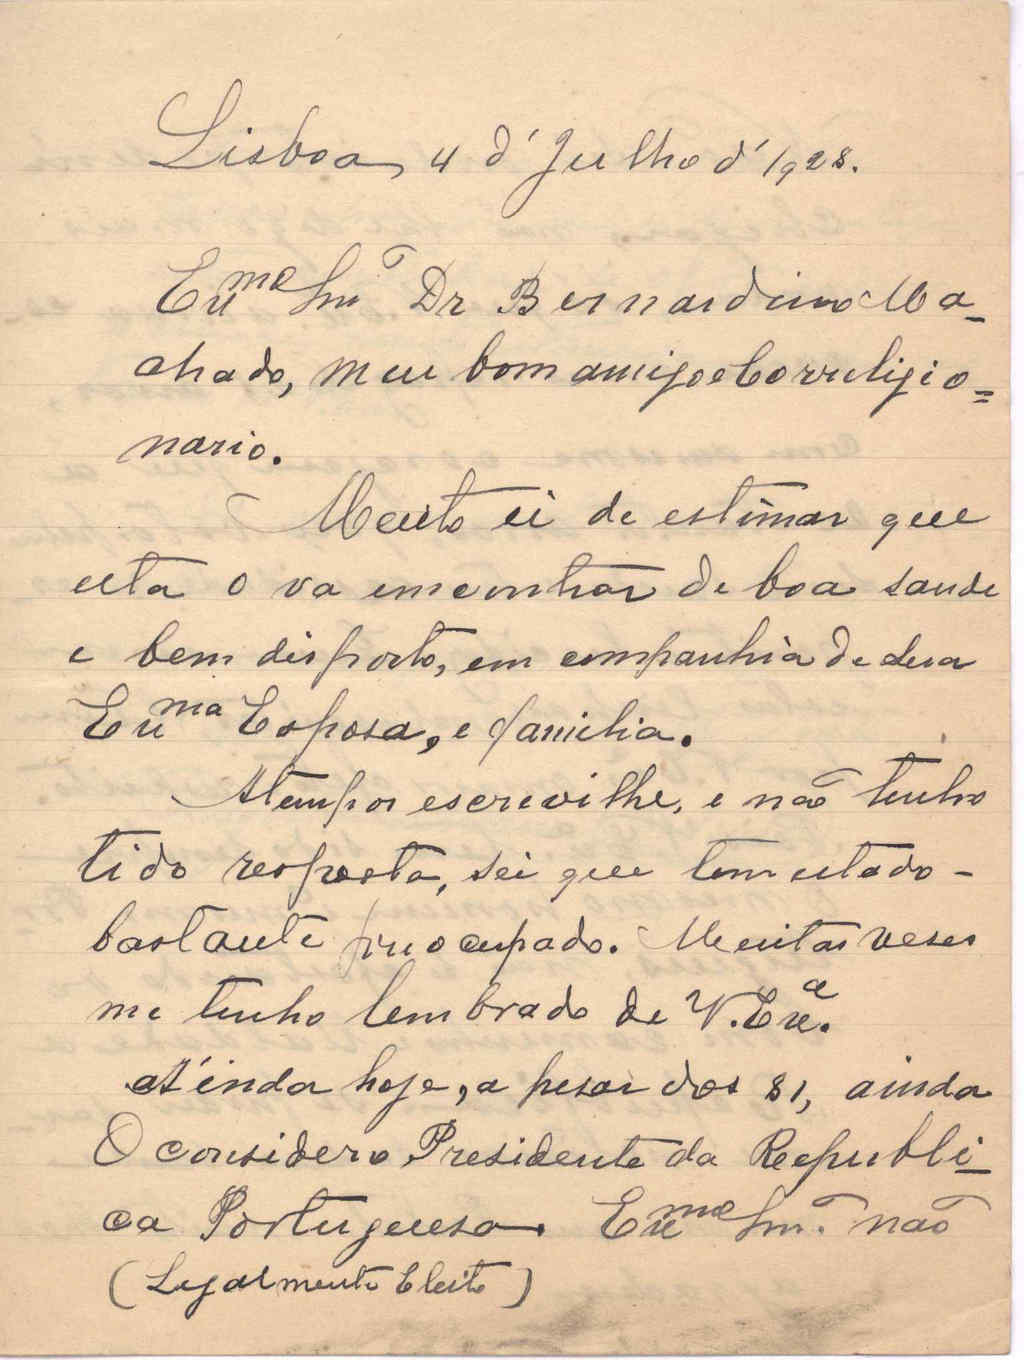 Lisboa, 4 d' Julho d' 1928.
Exmo Snr Dr Bernardino Ma-
chado, meu bom amigo e Correligio=
nario.
Muito ei de estimar que
esta o va emcontrar de boa saude
e bem disposto, em companhia de sua
Exma Esposa, e familia.
A tempos escrevilhe, e não tenho
tido resposta, sei que tem estado -
bastante priocupado. Muitas veses
me tenho lembrado de V. Exa.
A'inda hoje, a pesar dos 81, ainda
O considero Presidente da Republi-
ca Portuguesa. Exmo Snr. não
(Legalmente Eleito)